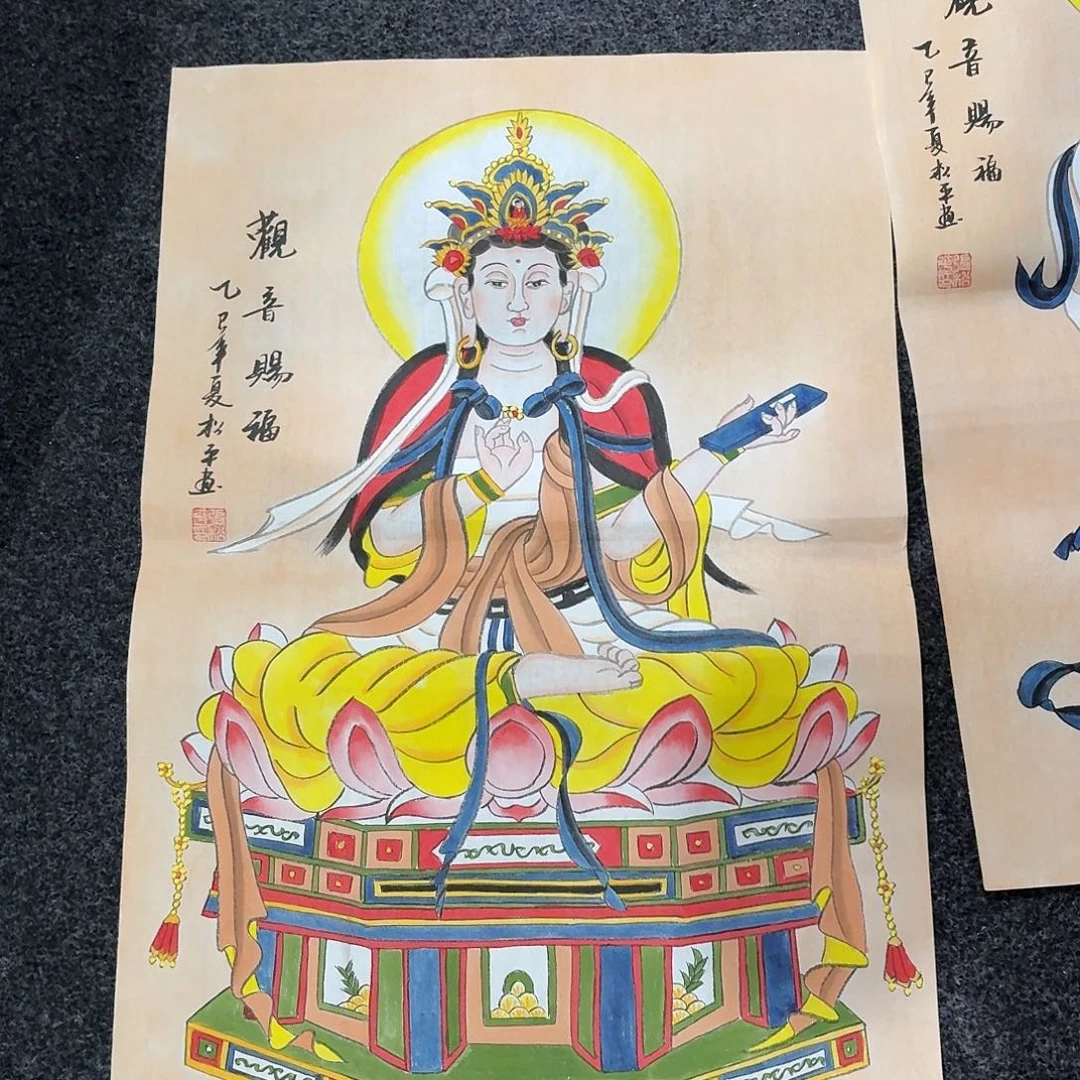 觀音賜福
乙巳年夏松平画
觀音賜福
乙巳年夏松平画